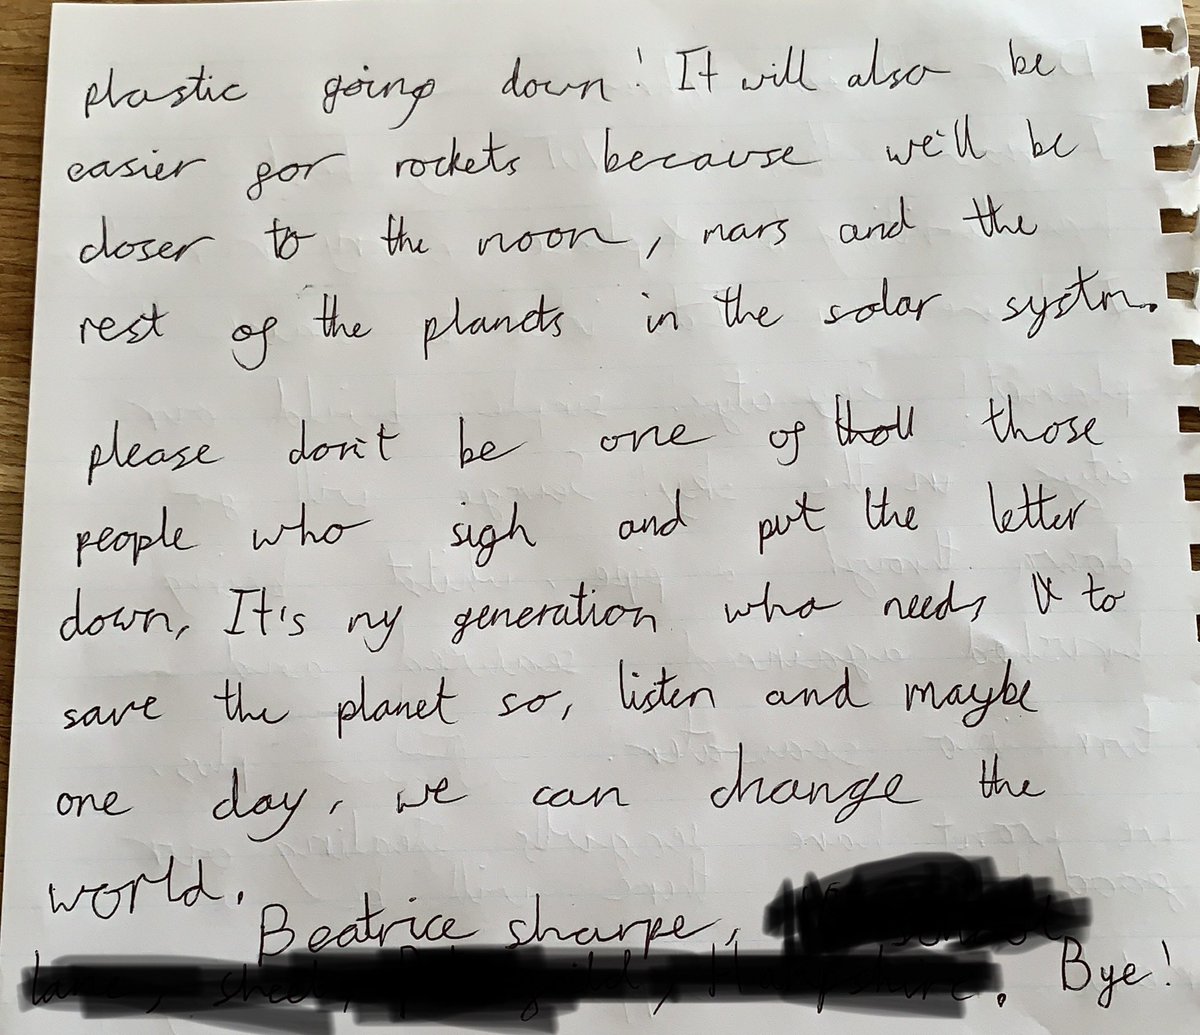 plastic going down! It will also be
easier for rockets because we'll be
closer to the moon, mars and the
rest of the planets in the solar systm.
please don't be one of those
people who sigh and put the letter
down, It's my generation who needs to
save the planet so, listen and maybe
one day, we can change the
world.
Beatrice sharpe,
Bye!